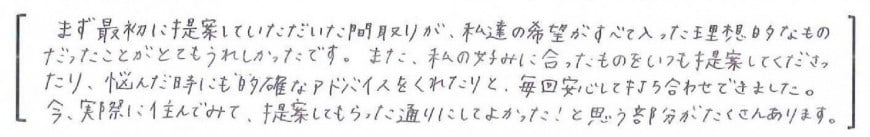 まず最初に提案していただいた間取りが、私達の希望がすべて入った理想的なもの
だったことがとてもうれしかったです。また、私の好みに合ったものをいつも提案してくださっ
たり、悩んだ時にも的確なアドバイスをくれたりと、毎回安心して打ち合わせできました。
今、実際に住んでみて、提案してもらった通りにしてよかった!と思う部分がたくさんあります。